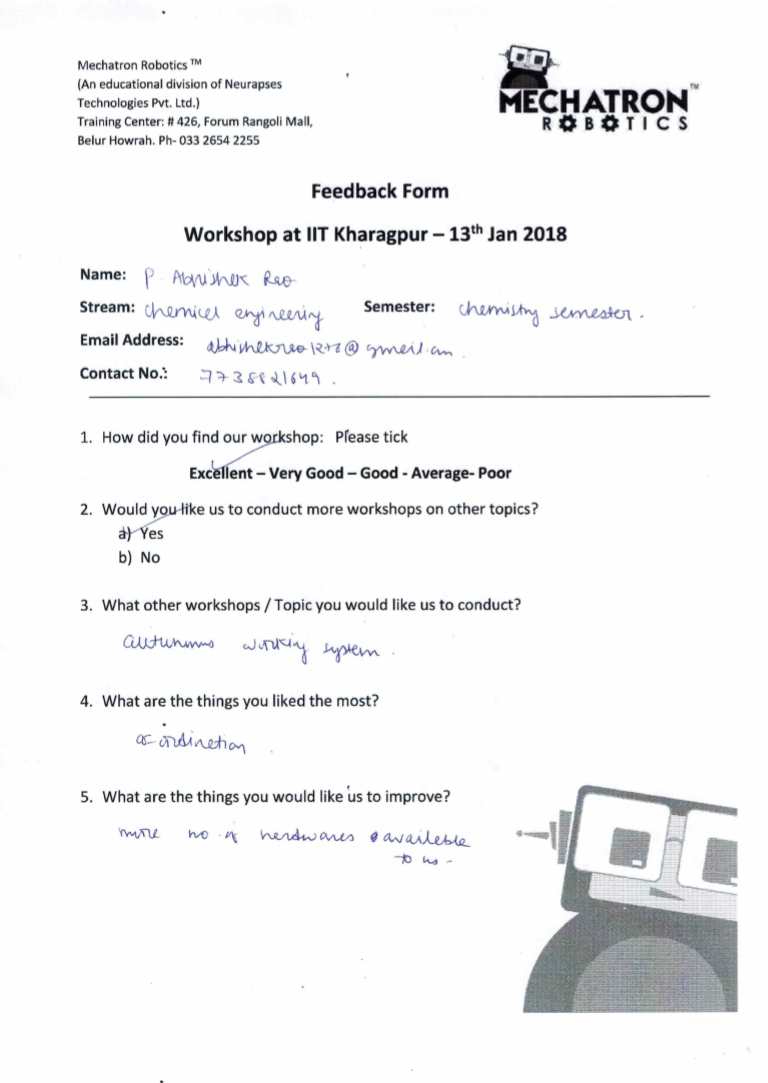 Mechatron Robotics ™
(An educational division of Neurapses
Technologies Pvt. Ltd.)
Training Center: # 426, Forum Rangoli Mall,
Belur Howrah. Ph- 033 2654 2255
MECHATRON™
ROBOTICS
Feedback Form
Workshop at IIT Kharagpur – 13th Jan 2018
Name: P. Abhishek Rao
Stream: chemical engineering Semester: chemistry semester.
Email Address:
Contact No.: 7738821649.
1. How did you find our workshop: Please tick
Excellent – Very Good – Good - Average- Poor
2. Would you like us to conduct more workshops on other topics?
a) Yes
b) No
3. What other workshops / Topic you would like us to conduct?
working system.
4. What are the things you liked the most?
co-ordination.
5. What are the things you would like us to improve?
more no. of hardwares available
to us -